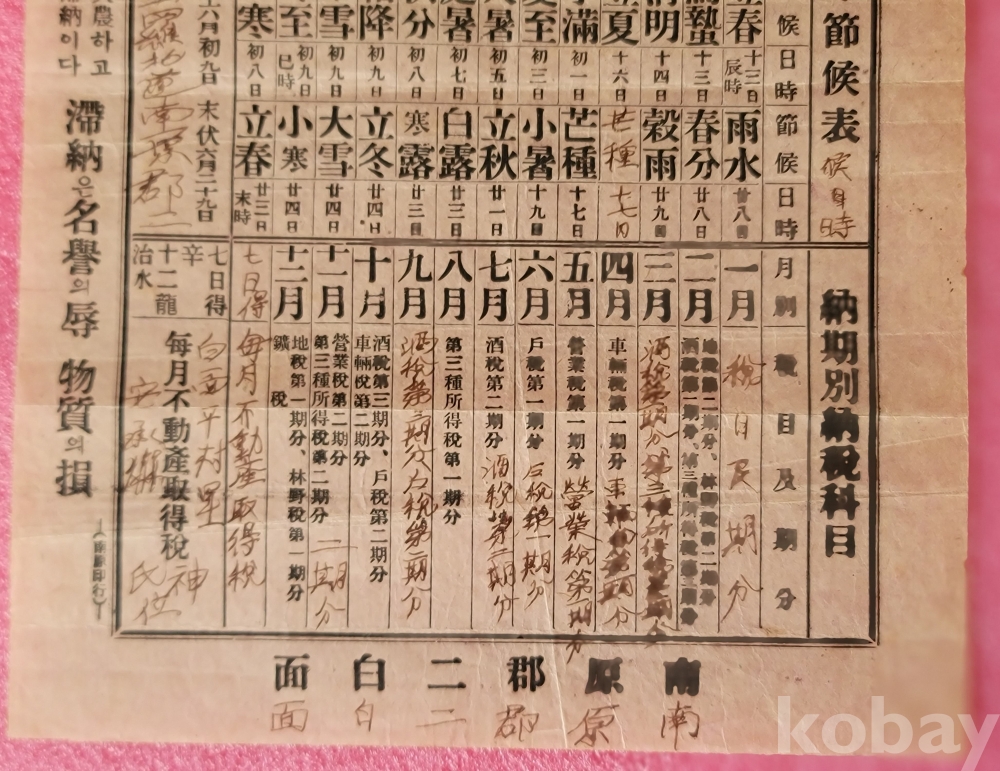 節候表
候日時
候日時
節候日時
立春
十三日
辰時
雨水
廿八日
驚蟄
十三日
春分
廿八日
清明
十四日
穀雨
廿九日
立夏
十六日
芒種
十七日
小滿
初一日
芒種
十七日
夏至
初三日
小暑
十九日
大暑
初五日
立秋
廿一日
處暑
初七日
白露
廿三日
秋分
初八日
寒露
廿三日
霜降
初九日
立冬
廿四日
小雪
初九日
大雪
廿四日
冬至
初九日
巳時
小寒
廿四日
大寒
初八日
立春
廿三日
末時
六月初九日 末伏六月二十九日
羅北道南原郡二
納期別納稅科目
月別
稅目及期分
一月
稅目及期分
二月
地稅第二期分、林野稅第二期分
酒稅第一期分、第三種所得稅第三期分
三月
酒稅第期分第三種所得稅第期分
四月
車輛稅第一期分
車輛稅第一期分
五月
營業稅第一期分
營業稅第一期分
六月
戶稅第一期分
戶稅第一期分
七月
酒稅第二期分
酒稅第二期分
八月
第三種所得稅第一期分
九月
酒稅第三期分戶稅第二期分
十月
酒稅第三期分、戶稅第二期分
車輛稅第二期分
十一月
營業稅第二期分
第三種所得稅第二期分
二期分
十二月
地稅第一期分、林野稅第一期分
鑛稅
七日得
每月不動產取得稅
七日得辛
十二龍治水
每月不動產取得稅
白面平村里
神
氏供
農하고
滯納이다
滯納은名譽의辱 物質의損
南原郡二白面
南原郡二白面
kobay